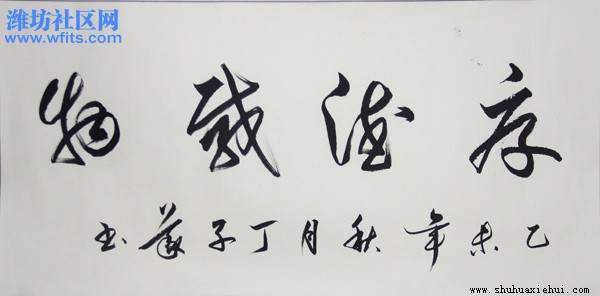 潍坊社区网
www.wfits.com
厚德載物
乙未年秋月丁子書
www.shuhuaxiehui.com